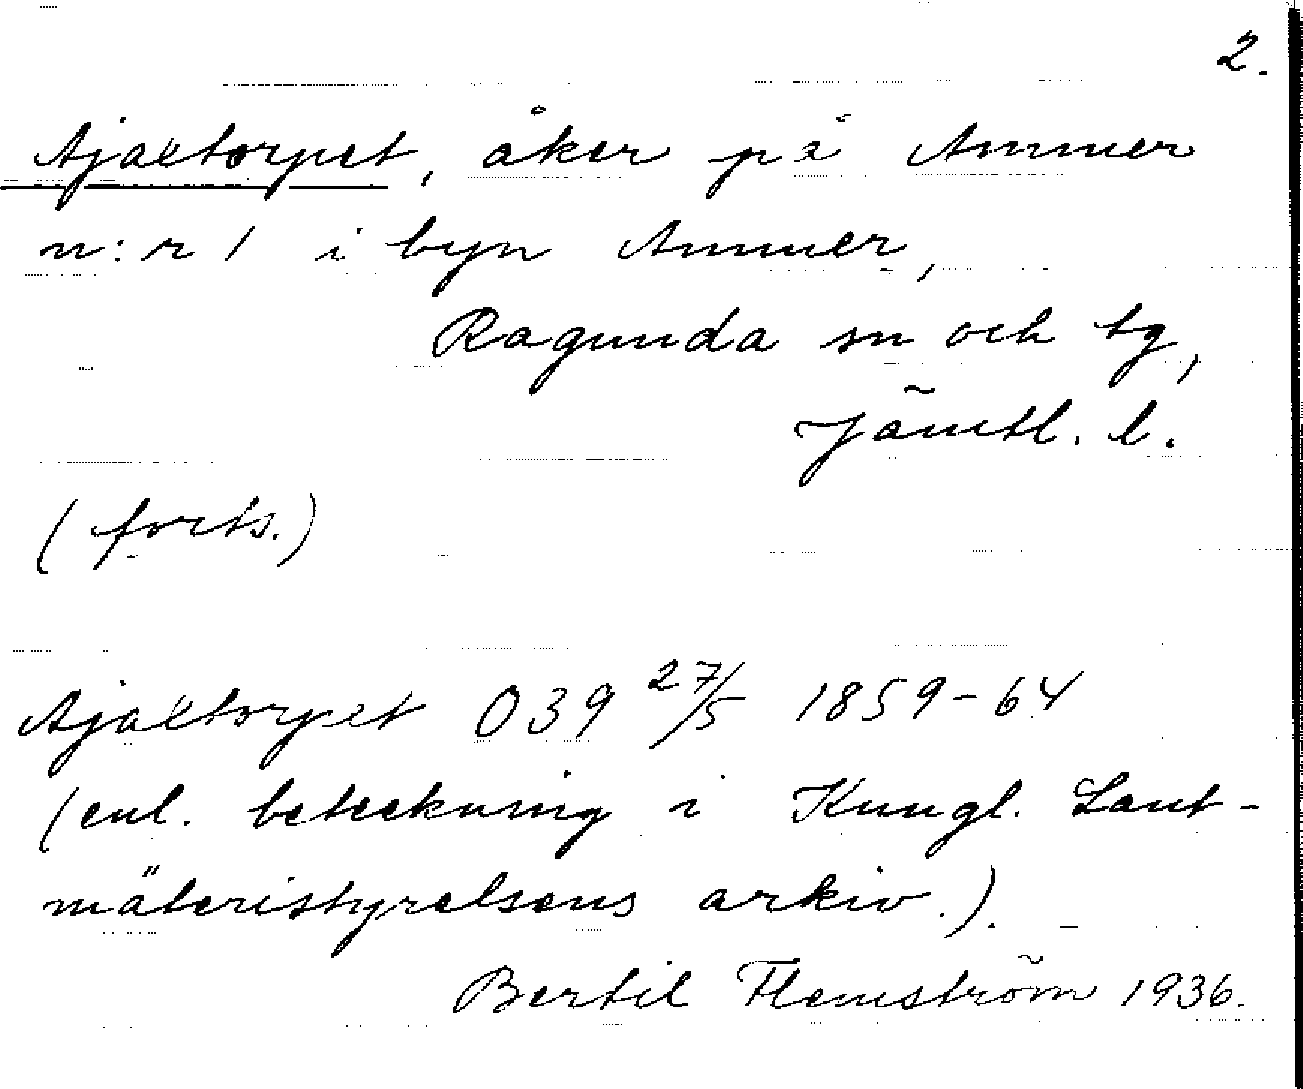 2.
Ajaltorpet, åker på Ammer
n:r 1 i byn Ammer,
Ragunda sn och tg,
Jämtl. l.
(forts.)
Ajaltorpet O39 27/5 1859-64
(enl. beteckning i Kungl. Lant-
mäteristyrelsens arkiv.).
Bertil Flemström 1936.